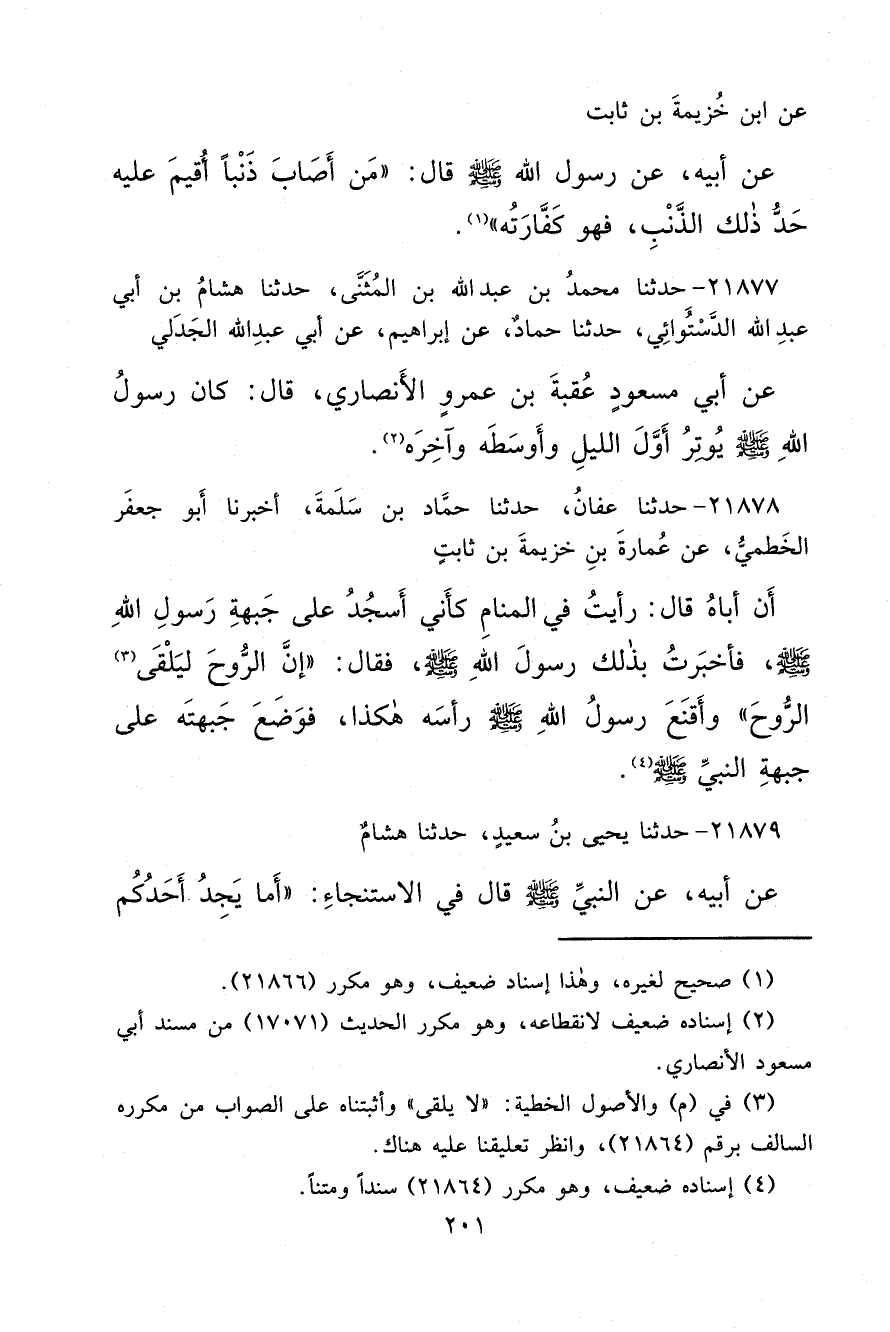 عن ابن خُزيمةَ بن ثابت
عن أبيه، عن رسول الله ﷺ قال: «مَن أَصَابَ ذَنْباً أُقيمَ عليه
حَدُّ ذٰلك الذَّنْبِ، فهو كَفَّارَتُه»(١).
٢١٨٧٧- حدثنا محمدُ بن عبدالله بن المُثَنَّى، حدثنا هشامُ بن أبي
عبدِ الله الدَّسْتُوائِي، حدثنا حمادٌ، عن إبراهيم، عن أبي عبدِالله الجَدَلي
عن أبي مسعودٍ عُقبةَ بن عمرٍو الأَنصاري، قال: كان رسولُ
اللهِ ﷺ يُوتِرُ أَوَّلَ الليلِ وأَوسَطَه وآخِرَه(٢).
٢١٨٧٨- حدثنا عفانُ، حدثنا حمَّاد بن سَلَمةَ، أخبرنا أَبو جعفَر
الخَطميُّ، عن عُمارةَ بنِ خزيمةَ بن ثابتٍ
أَن أباهُ قال: رأيتُ في المنامِ كأَني أَسجُدُ على جَبهةِ رَسولِ اللهِ
ﷺ، فأَخبَرتُ بذٰلك رسولَ اللهِ ﷺ، فقال: «إنَّ الرُّوحَ ليَلْقَى(٣)
الرُّوحَ» وأَقنَعَ رسولُ اللهِ ﷺ رأسَه هٰكذا، فوَضَعَ جَبهتَه على
جبهةِ النبيِّ ﷺ(٤).
٢١٨٧٩- حدثنا يحيى بنُ سعيدٍ، حدثنا هشامٌ
عن أبيه، عن النبيِّ ﷺ قال في الاستنجاءِ: «أَما يَجِدُ أَحَدُكُم
(١) صحيح لغيره، وهٰذا إسناد ضعيف، وهو مكرر (٢١٨٦٦).
(٢) إسناده ضعيف لانقطاعه، وهو مكرر الحديث (١٧٠٧١) من مسند أبي
مسعود الأنصاري.
(٣) في (م) والأصول الخطية: «لا يلقى» وأثبتناه على الصواب من مكرره
السالف برقم (٢١٨٦٤)، وانظر تعليقنا عليه هناك.
(٤) إسناده ضعيف، وهو مكرر (٢١٨٦٤) سنداً ومتناً.
٢٠١